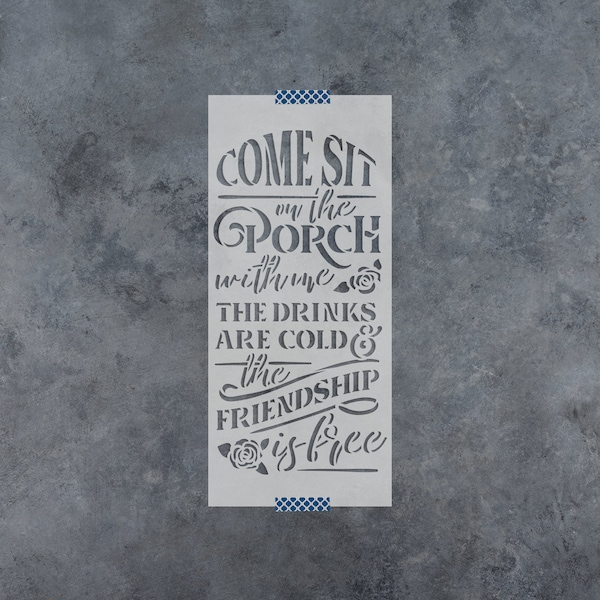 COME SIT
on the
PORCH
with me
THE DRINKS
ARE COLD &
the
FRIENDSHIP
is free